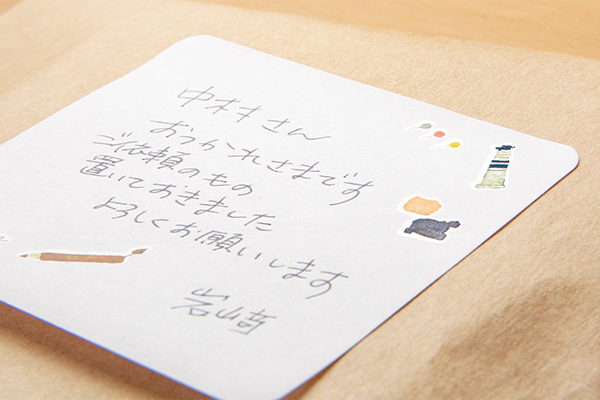 中村さん
おつかれさまです
ご依頼のもの
置いておきました
よろしくお願いします
岩崎